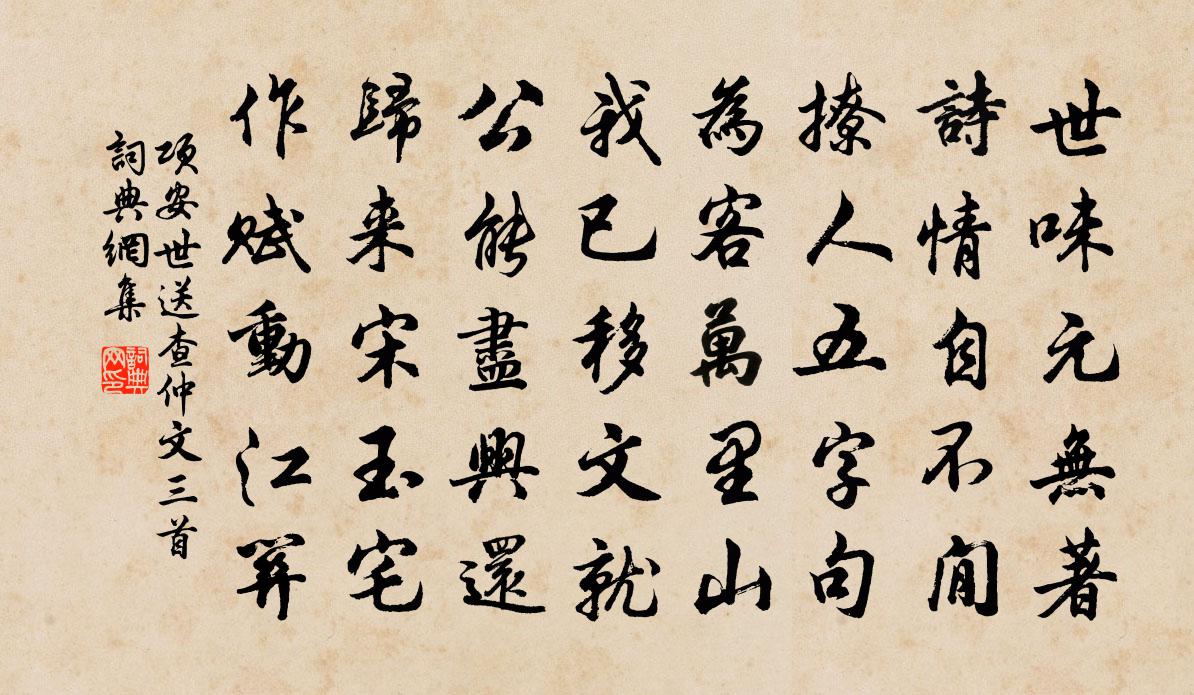 世味元無著
詩情自不閒
撩人五字句
為客萬里山
我已移文就
公能盡興還
歸来宋玉宅
作賦動江關
項安世送查仲文三首
詞典網集
詞典网印